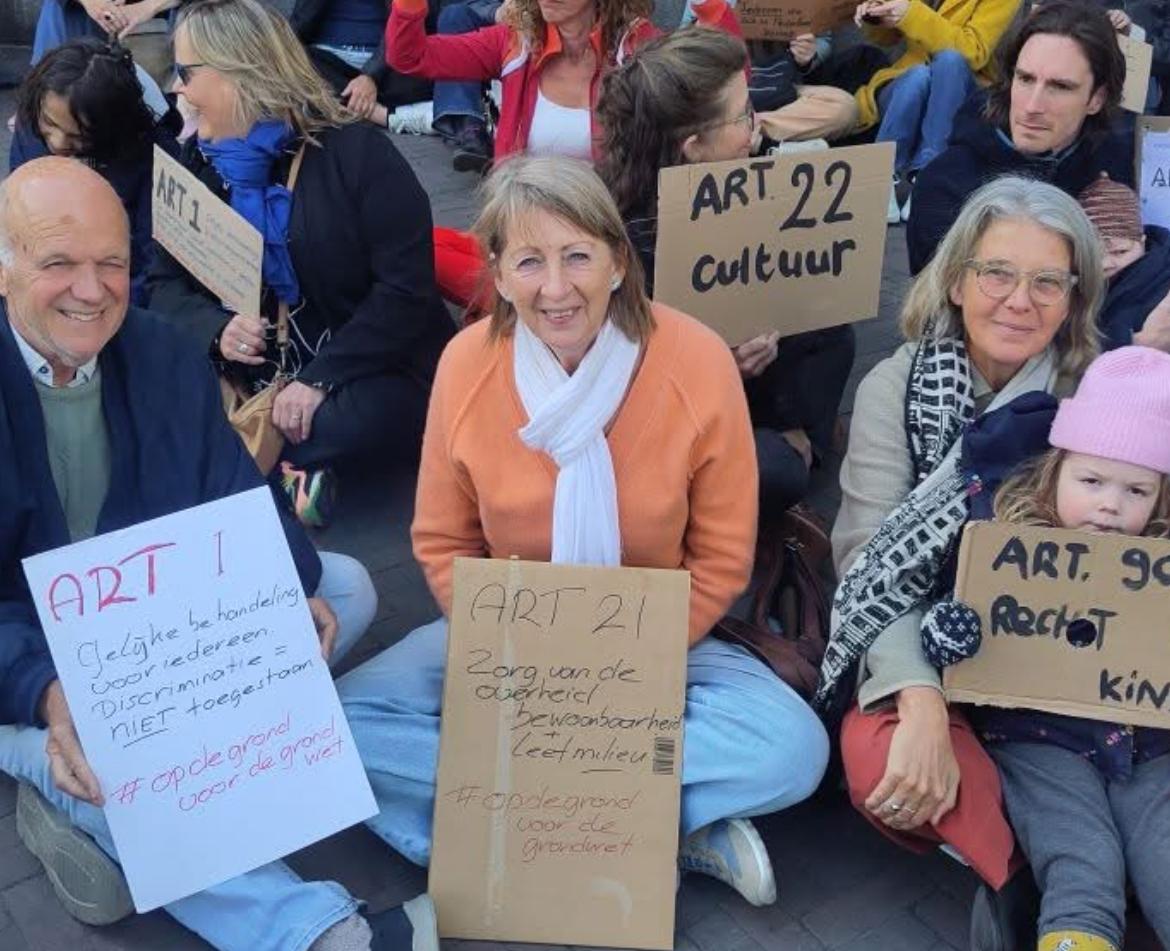 ART 1
ART. 22
cultuur
ART 1
Gelijke behandeling
voor iedereen.
Discriminatie =
NIET toegestaan
# opdegrond
voor de grond
wet
ART 21
Zorg van de
overheid
bewoonbaarheid
+
Leefmilieu
# opdegrond
voor de
grondwet
ART.
RechT
KiN